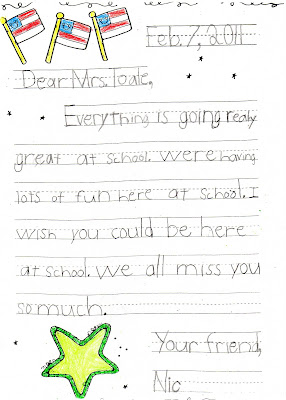 Feb. 7, 2011
Dear Mrs. Toale,
Everything is going really
great at school. were having
lots of fun here at school. I
wish you could be here
at school. we all miss you
so much.
Your friend,
Nic